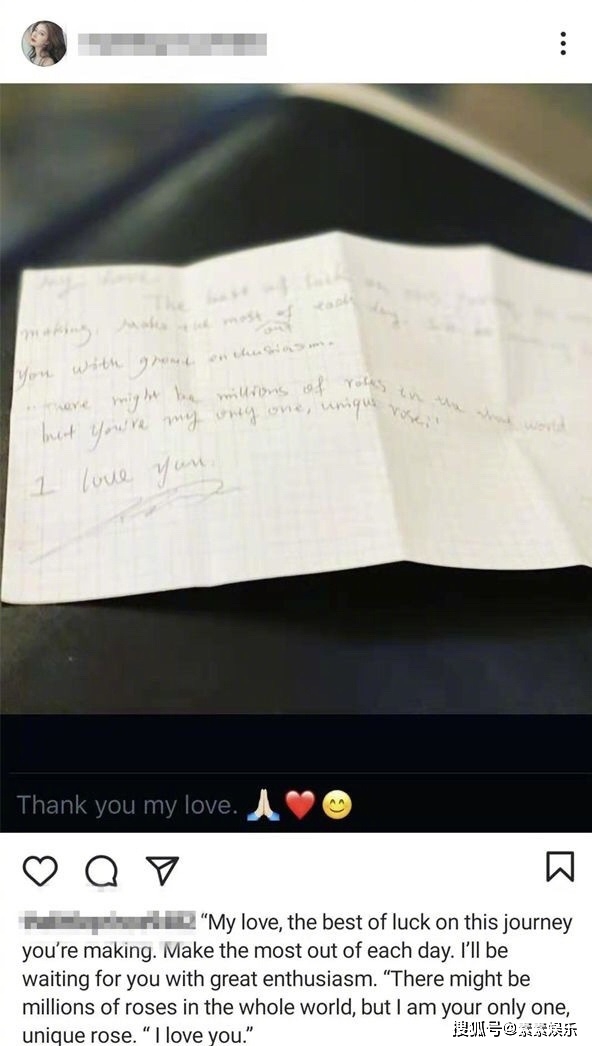 my love
The best of luck on this journey
making. Make the most of each day.
out
you with great enthusiasm.
there might be millions of roses in the whole world
but you're my only one, unique rose."
I love you.
Thank you my love. 🙏🏻❤️😊
“My love, the best of luck on this journey
you’re making. Make the most out of each day. I’ll be
waiting for you with great enthusiasm. “There might be
millions of roses in the whole world, but I am your only one,
unique rose. “ I love you.”
搜狐号@素素娱乐